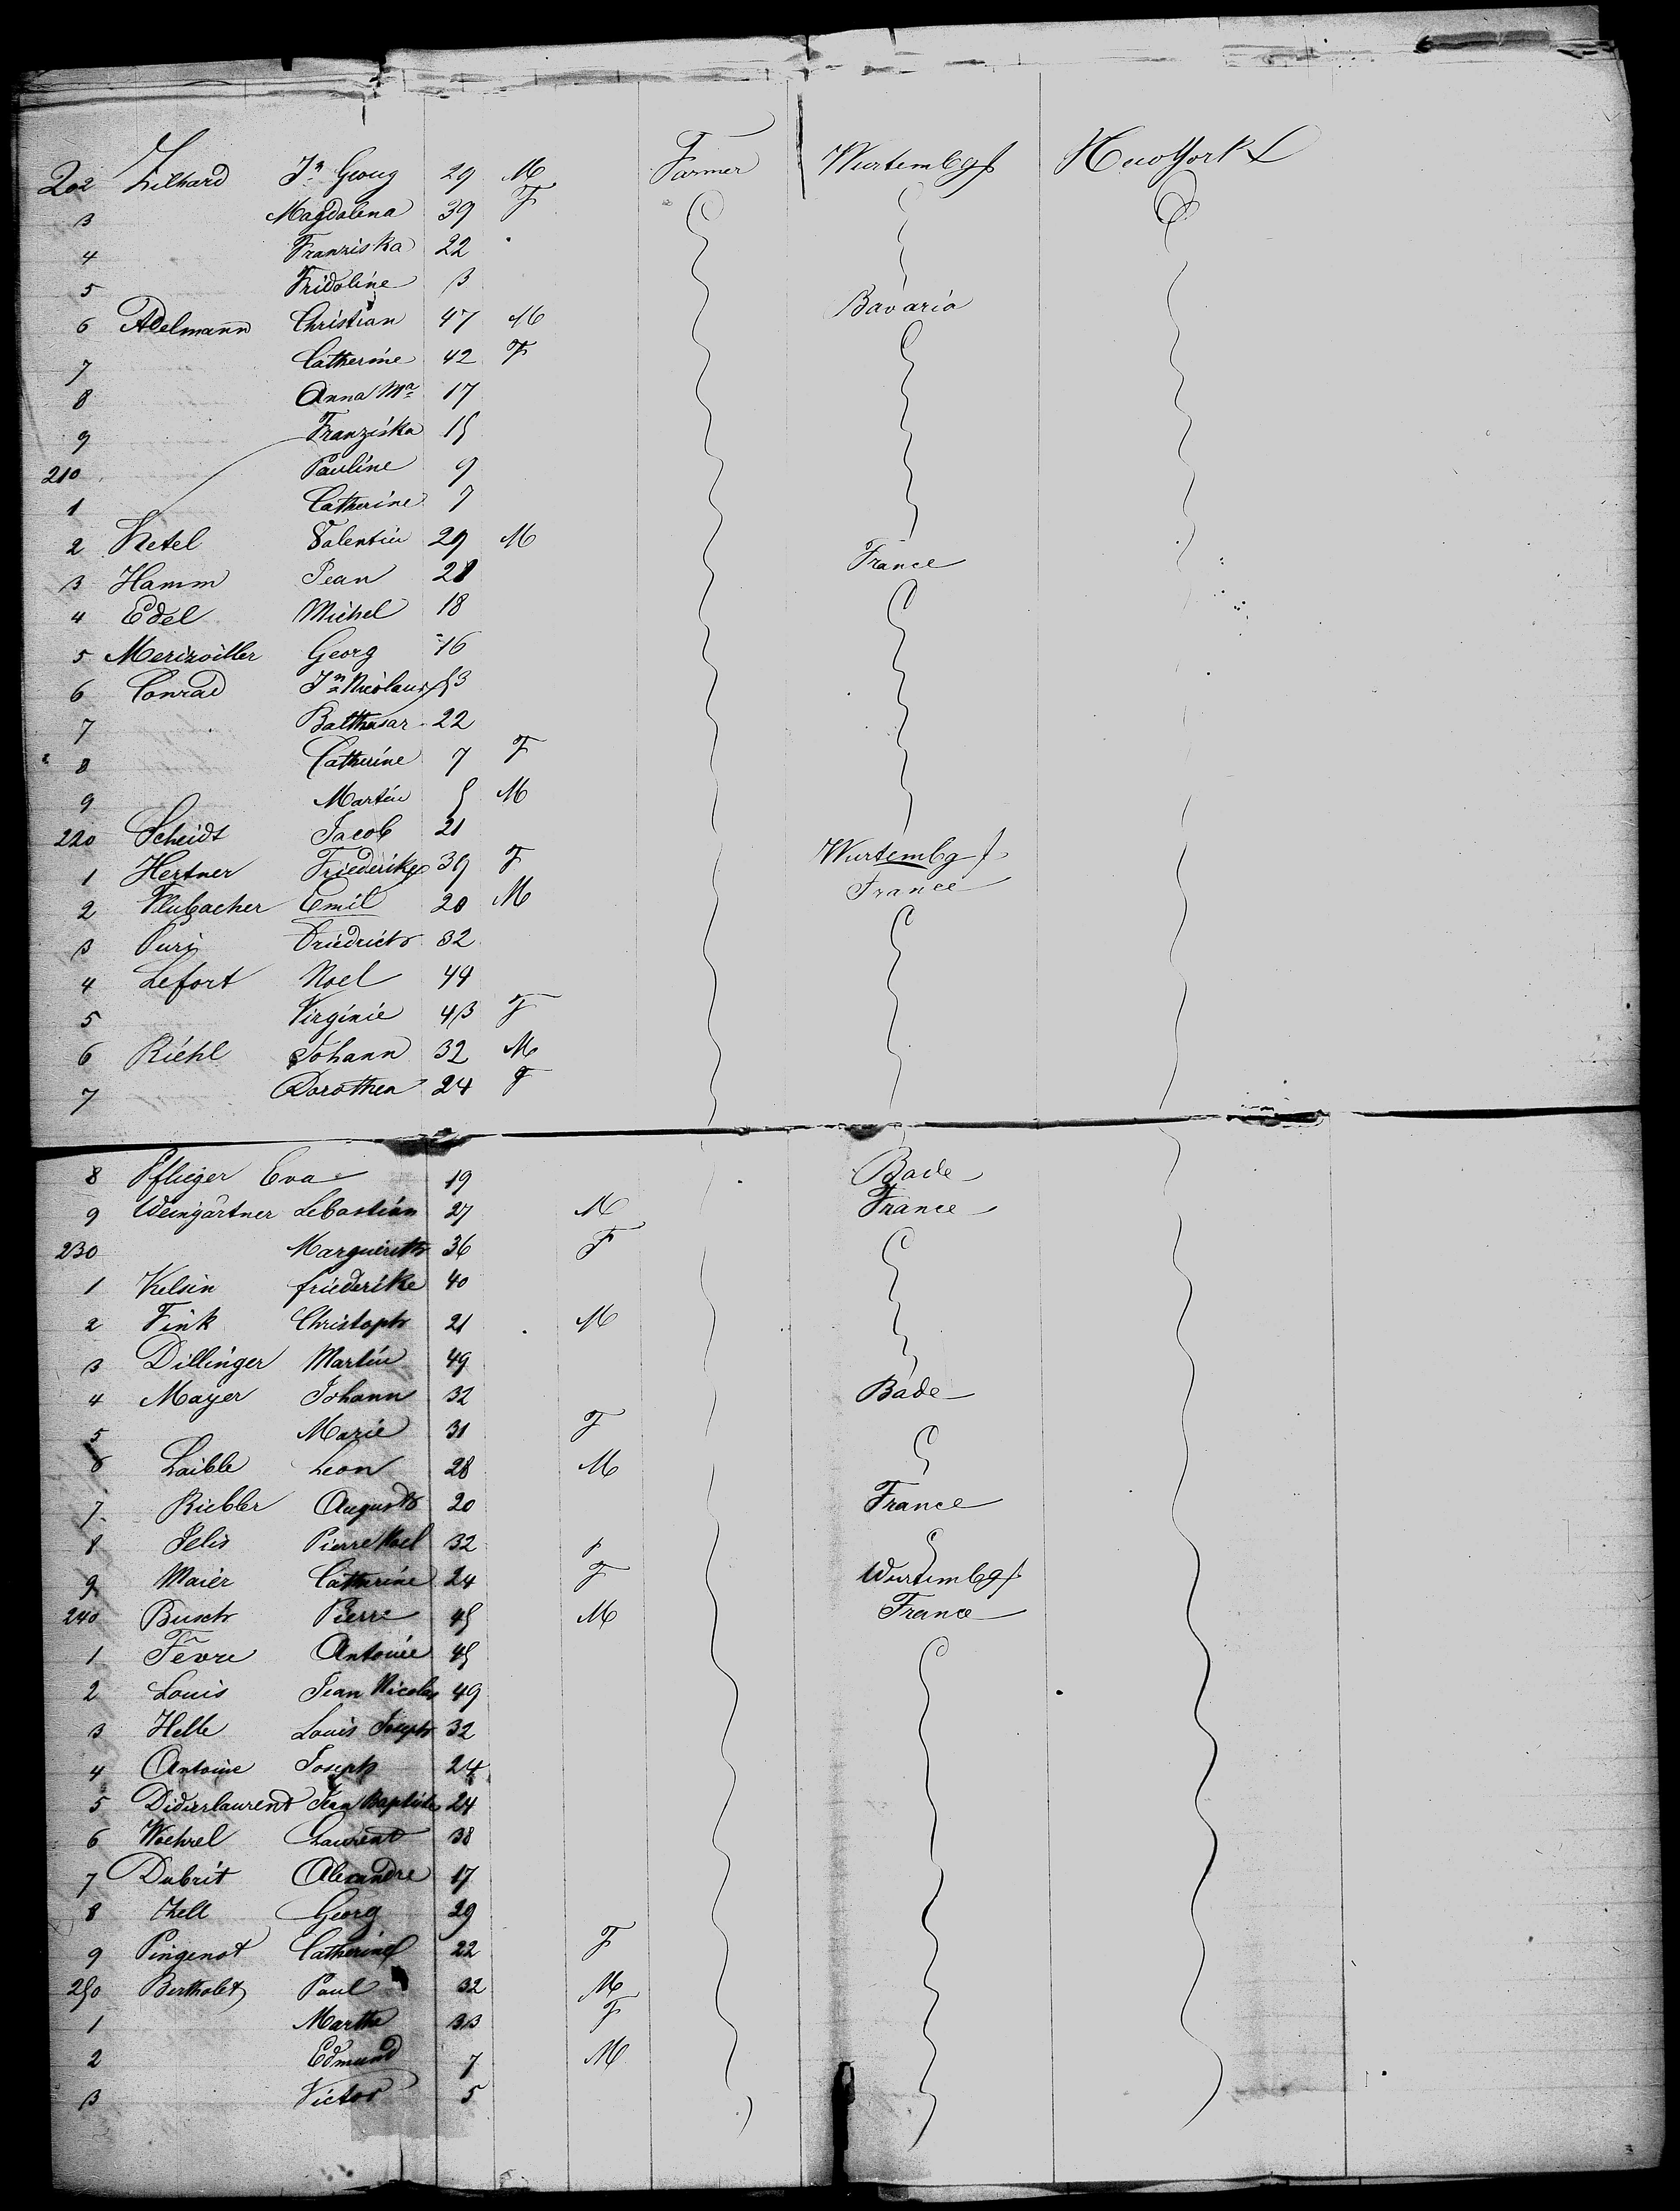 202 Zilhard Jn Georg 29 M Farmer Wurtembg New York
3 Magdalena 39 F
4 Franziska 22
5 Fridoline 3
6 Adelmann Christian 47 M Bavaria
7 Catherine 42 F
8 Anna Ma 17
9 Franziska 15
210 Pauline 9
1 Catherine 7
2 Ketel Valentin 29 M France
3 Hamm Jean 28
4 Edel Michel 18
5 Georg 16
6 Conrad Jn Nicolaus 53
7 Balthasar 22
8 Catherine 7 F
9 Martin 5 M
220 Scheidt Jacob 21
1 Hertner Friederike 39 F Wurtembg
2 Flubacher Emil 20 M France
3 Friedrich 32
4 Lefort Noel 44
5 Virginie 43 F
6 Riehl Johann 32 M
7 Dorothea 24 F
8 Pflieger Eva 19 Bade
9 Weingärtner Sebastian 27 M France
230 Marguerith 36 F
1 Kelsin friederike 40
2 Fink Christoph 21 M
3 Dillinger Martin 49
4 Mayer Johann 32 Bade
5 Marie 31 F
6 Laible Leon 28 M
7 Riebler August 20 France
8 Pierre Noel 32
9 Maier Catherine 24 F Wurtembg
240 Busch Pierre 45 M France
1 Fèvre Antoine 45
2 Louis Jean Nicolas 49
3 Helle Louis Joseph 32
4 Antoine Joseph 24
5 Didierlaurent Jean Baptiste 24
6 Woehrel Laurent 38
7 Dubrit Alexandre 17
8 Zell Georg 29
9 Pingenot Catherine 22 F
250 Bertholet Paul 32 M
1 Marthe 33 F
2 Edmund 7 M
3 Victor 5